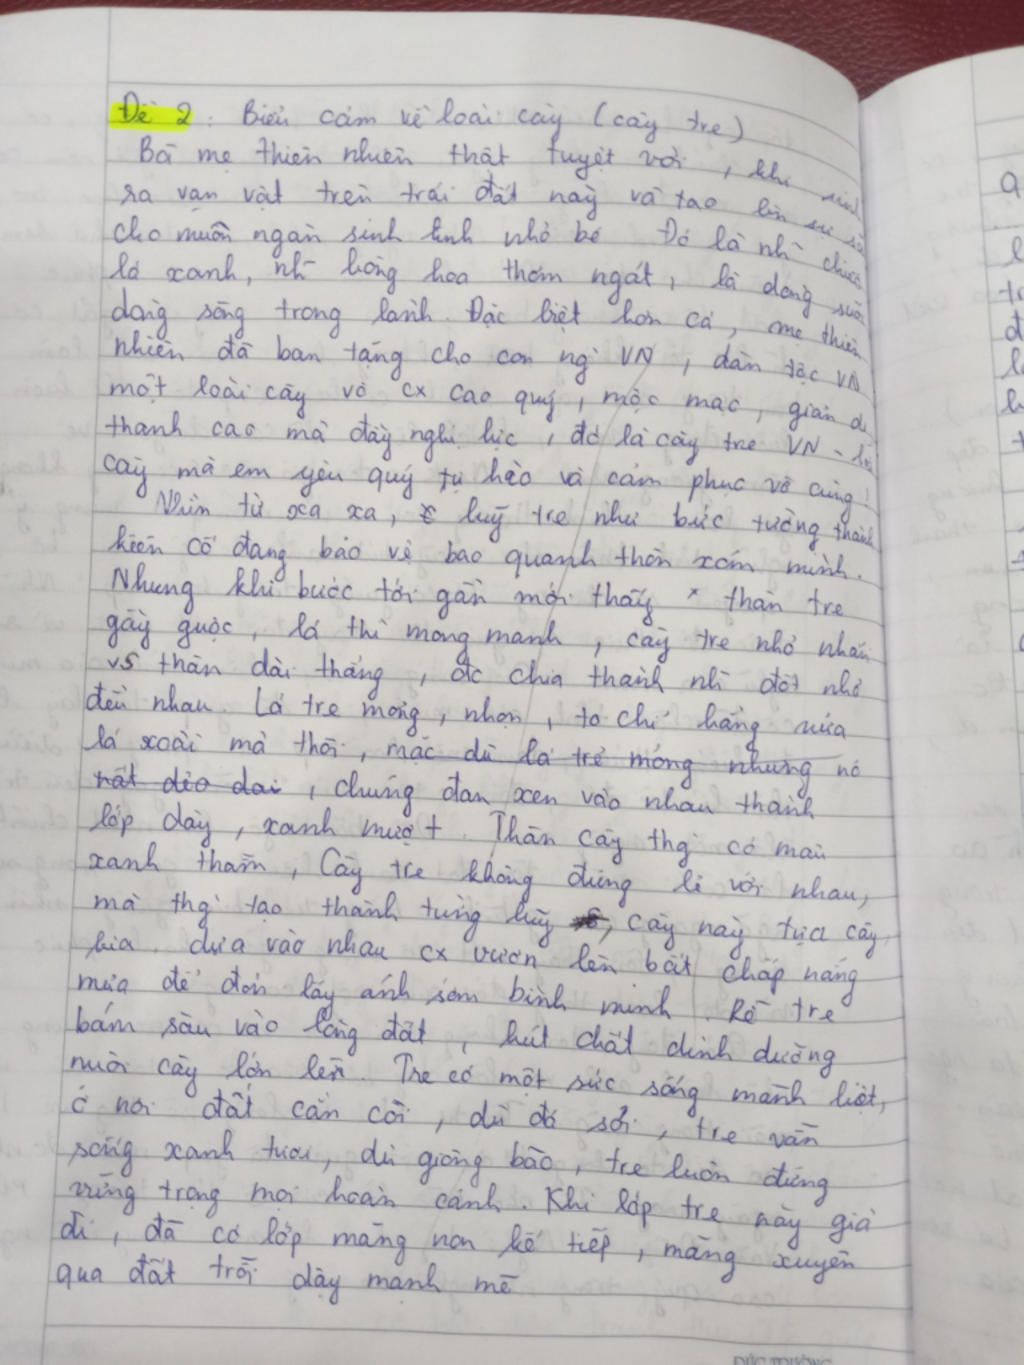 Đề 2 : Biểu cảm về loài cây (cây tre)
Bà mẹ thiên nhiên thật tuyệt vời, khi sinh
ra vạn vật trên trái đất này và tạo lên sự
cho muôn ngàn sinh linh nhỏ bé Đó là nh~ chiếc
lá xanh, nh~ bông hoa thơm ngát, là dòng suối
dòng sông trong lành. Đặc biệt hơn cả, mẹ thiên
nhiên đã ban tặng cho con ng` VN, dân tộc VN
một loài cây vô cx cao quý, mộc mạc, giản dị
thanh cao mà đầy nghị lực, đó là cây tre VN - loài
cây mà em yêu quý tự hào và cảm phục vô cùng!
Nhìn từ xa xa, luỹ tre như bức tường thành
kiên cố đang bảo vệ bao quanh thôn xóm mình.
Nhưng khi bước tới gần mới thấy thân tre
gầy guộc, lá thì mong manh, cây tre nhỏ nhắn
vs thân dài thẳng, đc chia thành nh~ đốt nhỏ
đều nhau. Lá tre mỏng, nhọn, to chỉ bằng nửa
lá xoài mà thôi, mặc dù lá tre mỏng nhưng nó
rất dẻo dai, chúng đan xen vào nhau thành
lớp dày, xanh mượt. Thân cây thg` có màu
xanh thẫm, Cây tre không đứng lẻ với nhau,
mà thg` tạo thành từng luỹ, cây này tựa cây
kia. dựa vào nhau cx vươn lên bất chấp nắng
mưa để đón lấy ánh sớm bình minh. Rễ tre
bám sâu vào lòng đất, hút chất dinh dưỡng
nuôi cây lớn lên. Tre có một sức sống mãnh liệt,
ở nơi đất cằn cỗi, dù đá sỏi, tre vẫn
sống xanh tươi, dù giông bão, tre luôn đứng
vững trọng mọi hoàn cảnh. Khi lớp tre này già
đi, đã có lớp măng non kế tiếp, măng xuyên
qua đất trỗi dậy mạnh mẽ